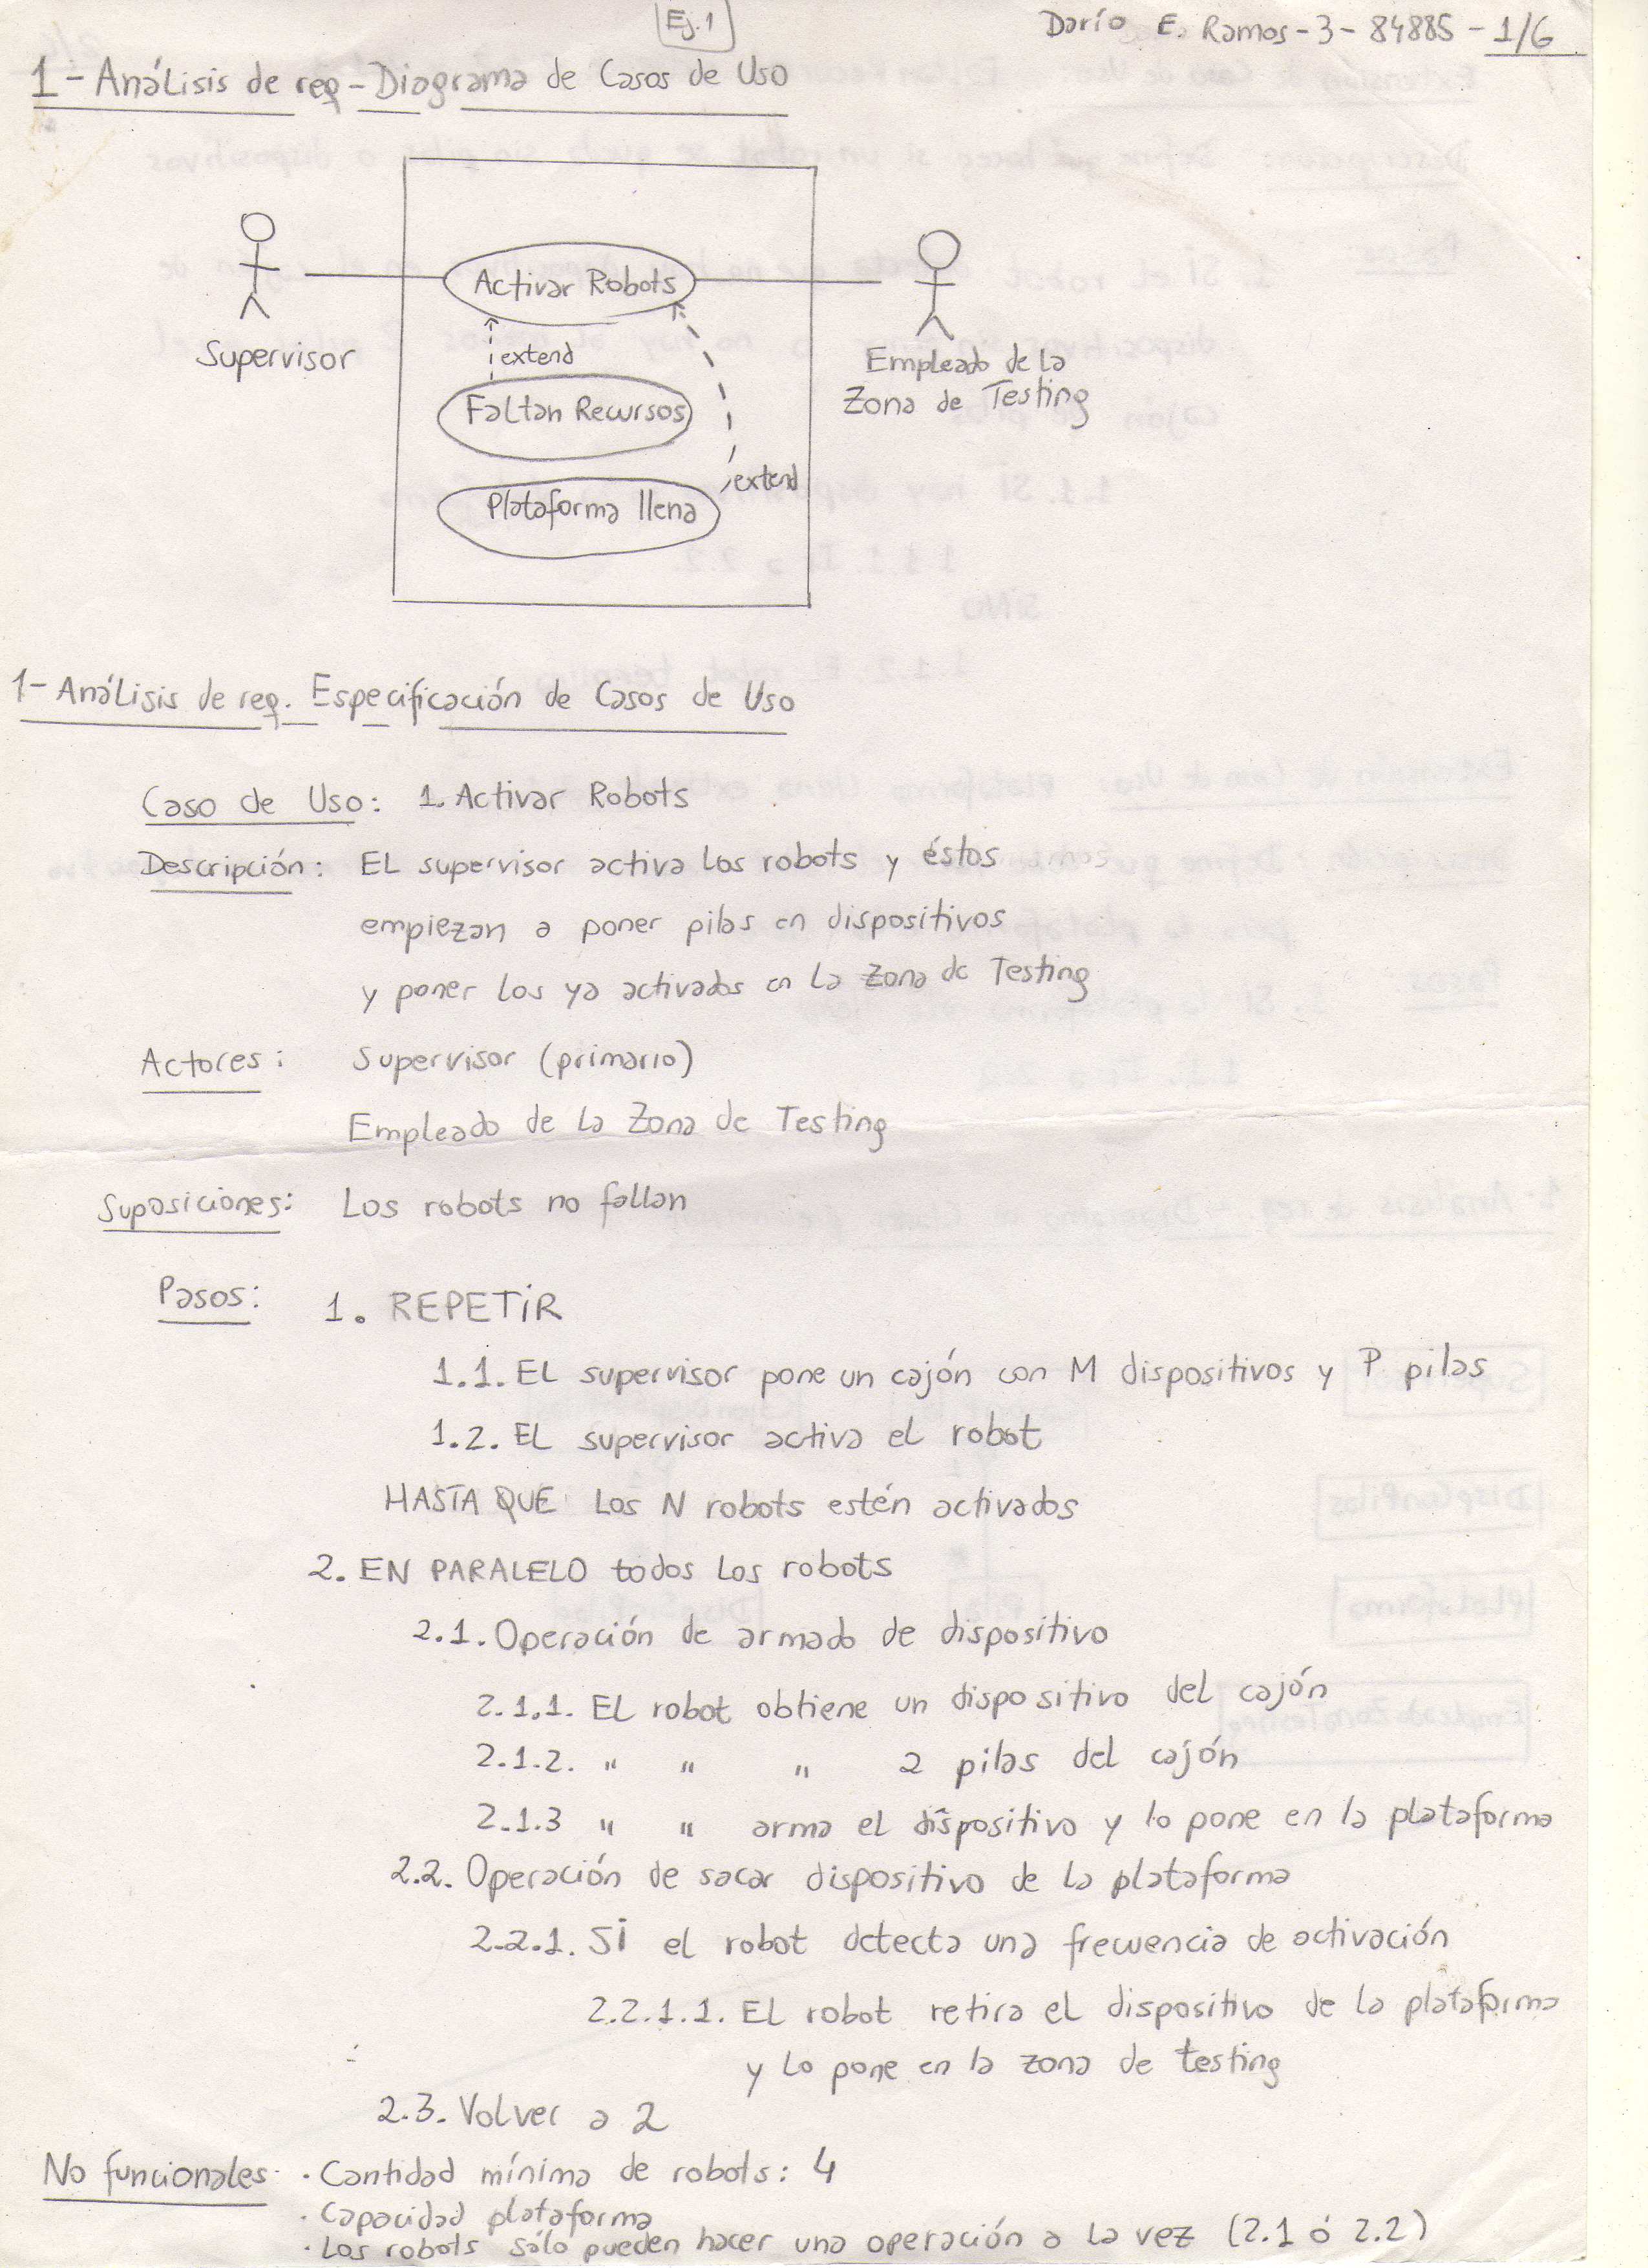 Ej. 1
Darío E. Ramos - 3 - 84885 - 1/6
1 - Análisis de req - Diagrama de Casos de Uso
Activar Robots
Supervisor
extend
Empleado de la
Zona de Testing
Faltan Recursos
extend
Plataforma llena
1 - Análisis de req. Especificación de Casos de Uso
Caso de Uso: 1. Activar Robots
Descripción: El supervisor activa los robots y éstos
empiezan a poner pilas en dispositivos
y poner los ya activados en la Zona de Testing
Actores: Supervisor (primario)
Empleado de la Zona de Testing
Suposiciones: Los robots no fallan
Pasos: 1. REPETIR
1.1. El supervisor pone un cajón con M dispositivos y P pilas
1.2. El supervisor activa el robot
HASTA QUE los N robots estén activados
2. EN PARALELO todos los robots
2.1. Operación de armado de dispositivo
2.1.1. El robot obtiene un dispositivo del cajón
2.1.2. " " " 2 pilas del cajón
2.1.3 " " arma el dispositivo y lo pone en la plataforma
2.2. Operación de sacar dispositivo de la plataforma
2.2.1. Si el robot detecta una frecuencia de activación
2.2.1.1. El robot retira el dispositivo de la plataforma
y lo pone en la zona de testing
2.3. Volver a 2
No funcionales · Cantidad mínima de robots: 4
· Capacidad plataforma
· Los robots sólo pueden hacer una operación a la vez (2.1 ó 2.2)